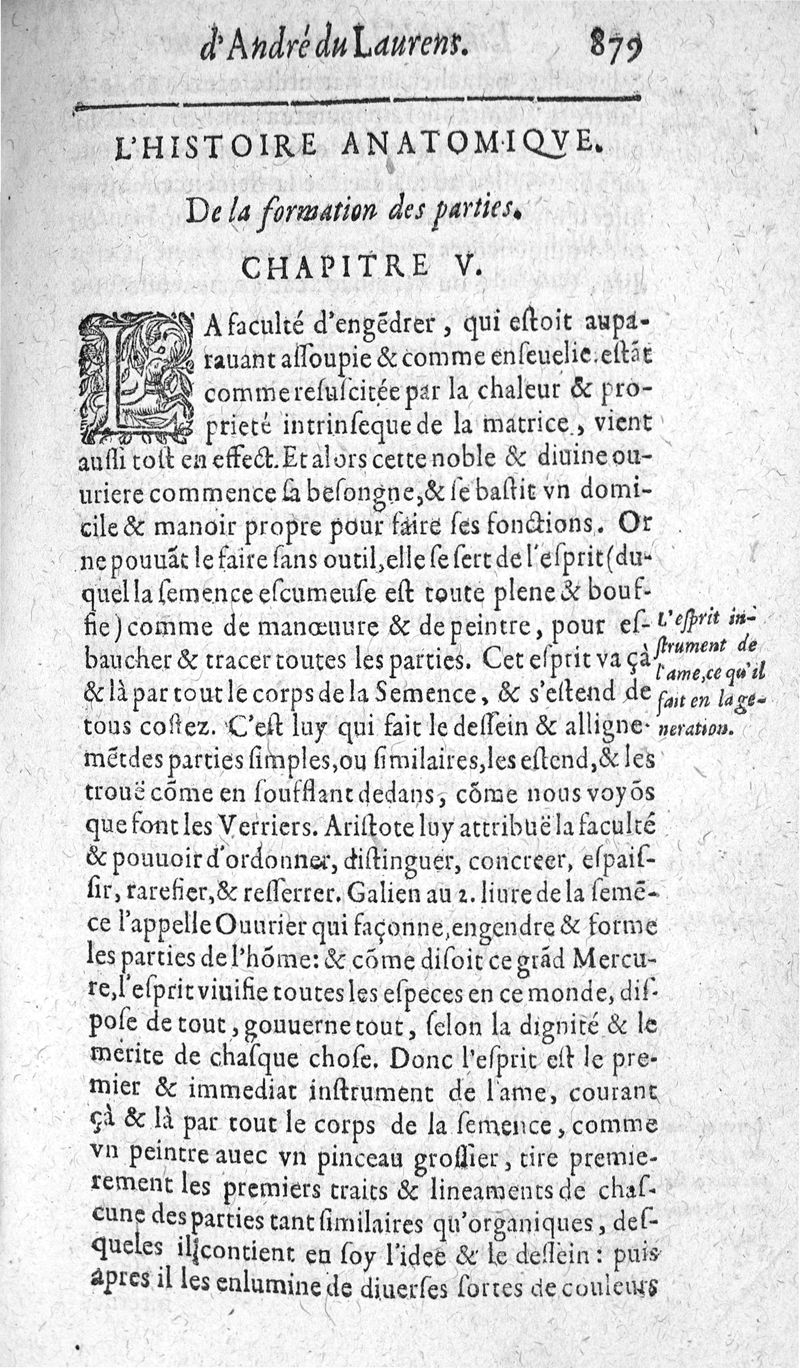 d'André du Laurens. 879
L'HISTOIRE ANATOMIQVE.
De la formation des parties.
CHAPITRE V.
LA faculté d'engẽdrer, qui eſtoit aupa-
rauant aſſoupie & comme enſeuelie, eſtãt
comme reſuſcitée par la chaleur & pro-
prieté intrinſeque de la matrice, vient
auſſi toſt en effect. Et alors cette noble & diuine ou-
uriere commence ſa beſongne, & ſe baſtit vn domi-
cile & manoir propre pour faire ſes fonctions. Or
ne pouuãt le faire ſans outil, elle ſe ſert de l'eſprit (du-
quel la ſemence eſcumeuſe eſt toute plene & bouf-
fie) comme de manœuure & de peintre, pour eſ-
baucher & tracer toutes les parties. Cet eſprit va çà
& là par tout le corps de la Semence, & s'eſtend de
tous coſtez. C'eſt luy qui fait le deſſein & alligne-
mẽt des parties ſimples, ou ſimilaires, les eſtend, & les
trouë cõme en ſoufflant dedans, cõme nous voyõs
que font les Verriers. Ariſtote luy attribuë la faculté
& pouuoir d'ordonner, diſtinguer, concreer, eſpaiſ-
ſir, rarefier, & reſſerrer. Galien au 2. liure de la ſemẽ-
ce l'appelle Ouurier qui façonne, engendre & forme
les parties de l'hõme: & cõme diſoit ce grãd Mercu-
re, l'eſprit viuifie toutes les eſpeces en ce monde, diſ-
poſe de tout, gouuerne tout, ſelon la dignité & le
merite de chaſque choſe. Donc l'eſprit eſt le pre-
mier & immediat inſtrument de l'ame, courant
çà & là par tout le corps de la ſemence, comme
vn peintre auec vn pinceau groſſier, tire premie-
rement les premiers traits & lineaments de chaſ-
cune des parties tant ſimilaires qu'organiques, deſ-
queles il contient en ſoy l'idee & le deſſein: puis
apres il les enlumine de diuerſes ſortes de couleurs
L'eſprit in-
ſtrument de
l'ame, ce qu'il
fait en la ge-
neration.